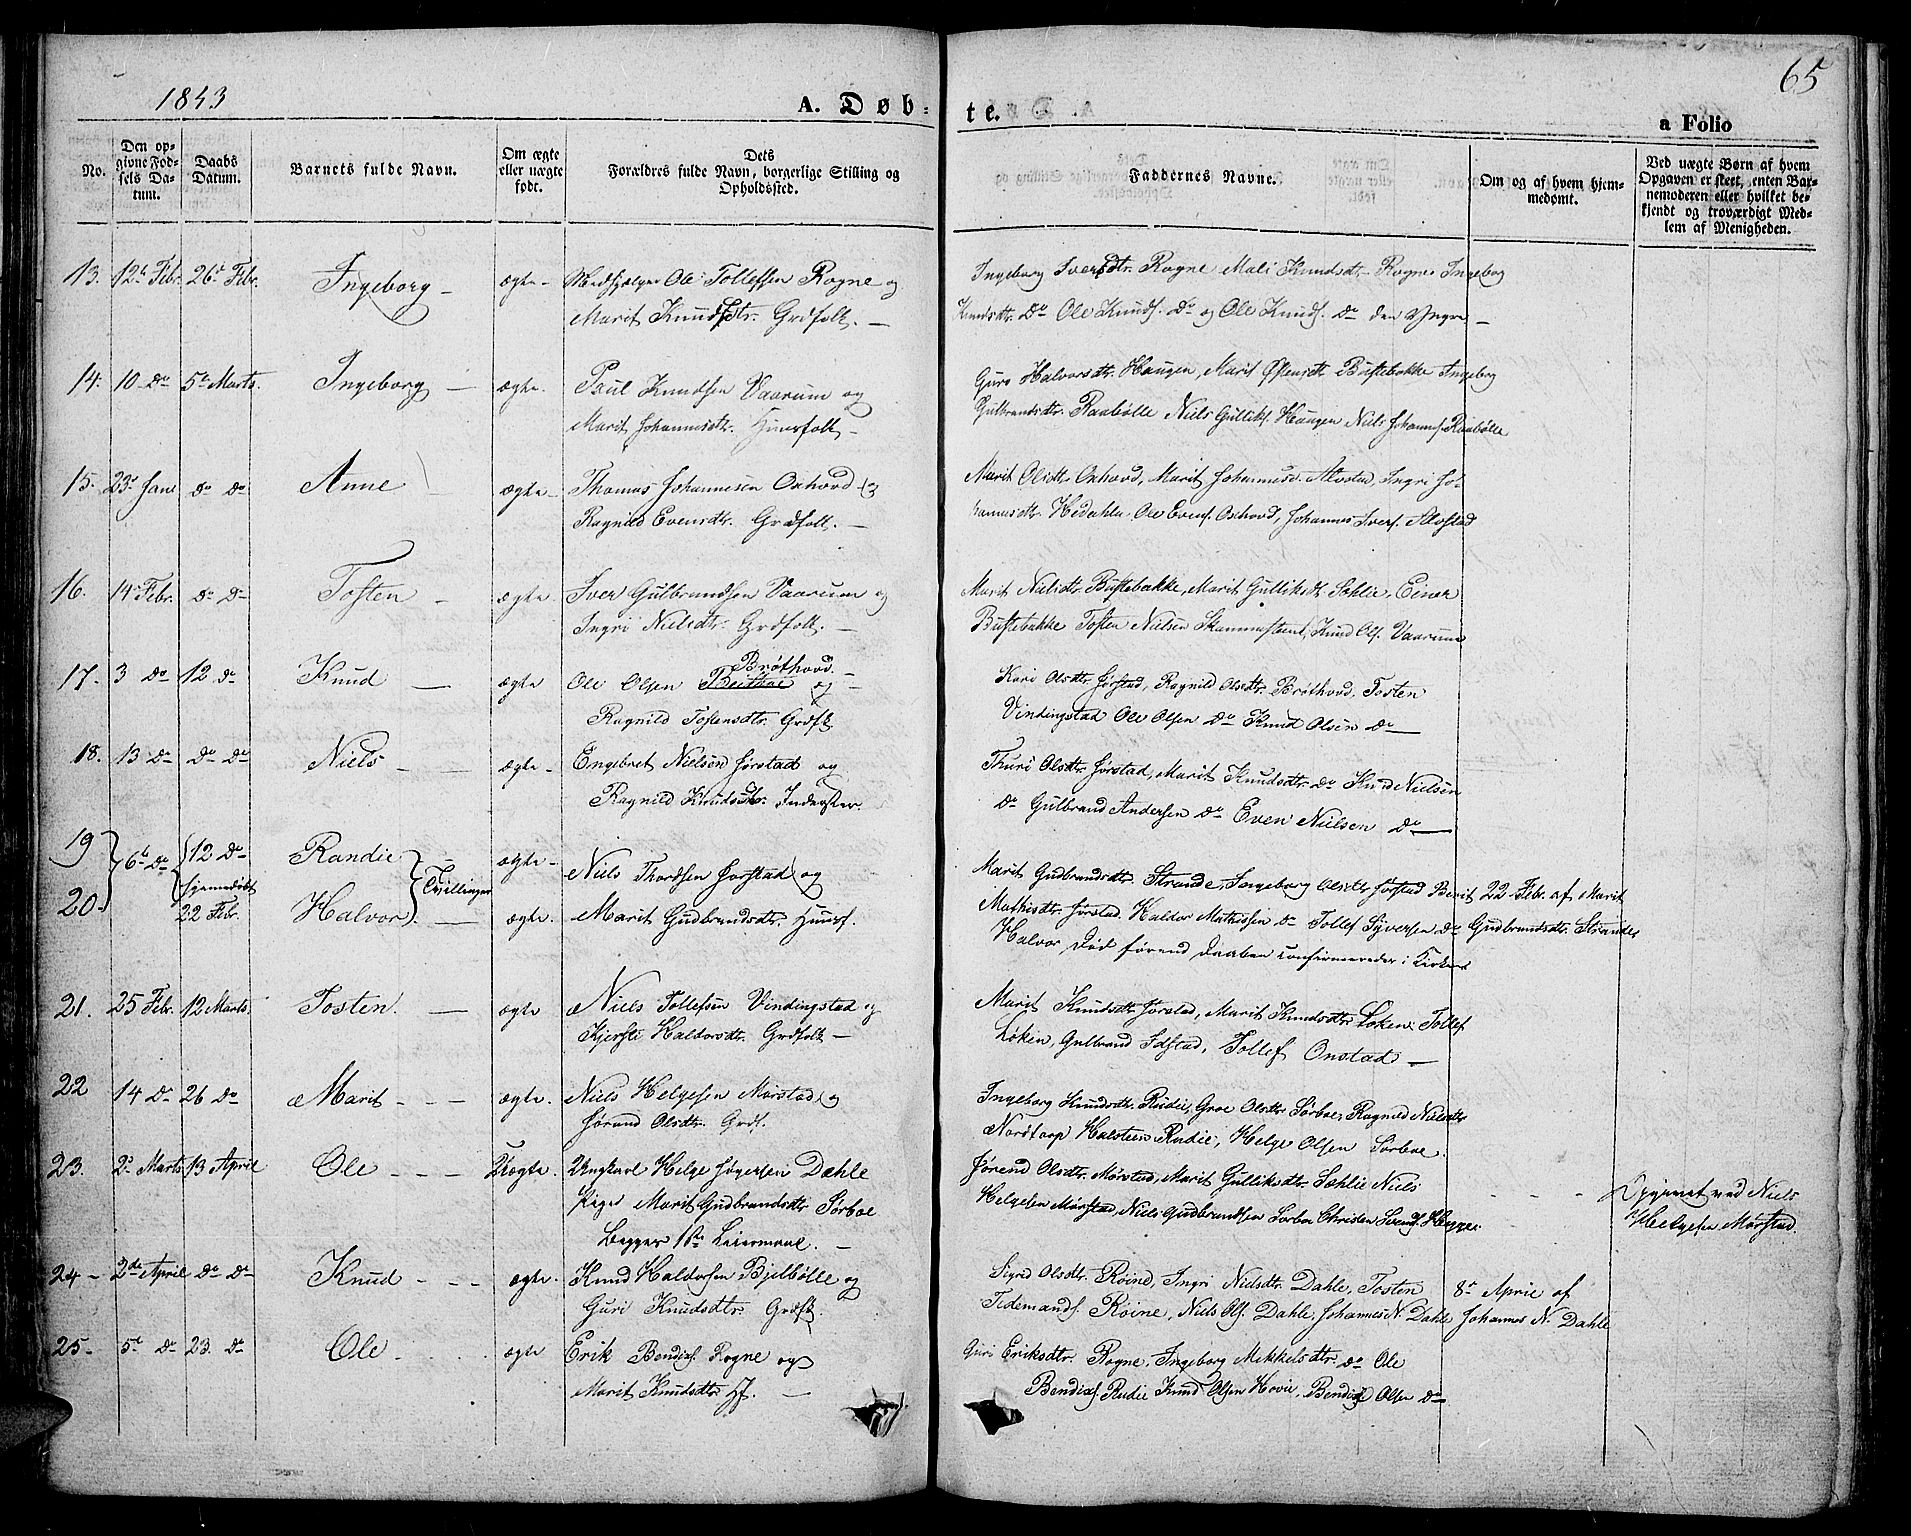 1843
A. Døb=
te.
65
a Folio
No.
Den op-
givne Fød-
sels Da-
tum.
Daabs
Datum.
Barnets fulde Navn.
Om ægte
eller uægte
født.
Dets
Forældres fulde Navn, borgerlige Stilling og
Opholdssted.
Faddernes Navne.
Om og af hvem hjem-
medømt.
Ved uægte Børn af hvem
Opgaven er skeet, enten Bar-
nemoderen eller hvilket be-
kjendt og troværdigt Med-
lem af Menigheden.
13. 12te Febr. 26de Febr. Ingeborg - ægte - Medhjælper Ole Tollefsen Rogne og
Marit Knudsdtr. Grdfolk. -
Ingeborg Iversdtr. Rogne Mali Knudsdtr Rogne Ingebor
Knudsdtr. Do Ole Knuds. Do og Ole Knuds. Do den Yngre -
14. 10 - do 5te Marts. Ingeborg - ægte. Paul Knudsen Vaarum og
Marit Johannesdtr. Huusfolk -
Guro Halvorsdtr. Haugen, Marit Østensdtr Buftebakke Ingebor
Gulbrandsdtr. Raabølle Niels Gulliks. Haugen Niels Johannes. Raabølle
15. 23de Janr do do Anne ægte - Thomas Johannesen Oxhovd og
Ragnild Evensdtr. Grdfolk. -
Marit Olsdtr Oxhovd, Marit Johannesd. Alvstad, Ingri Jo-
hannesdtr. Hedahlen Ole Evens. Oxhovd, Johannes Ivers. Alvstad
16. 14 Febr. do do Tosten - ægte. Iver Gulbrandsen Vaarum og
Ingri Nielsdtr. Grdfolk. -
Marit Nielsdtr Buftebakke, Marit Gulliksdtr Sæhlie, Einar
Buftebakke Tosten Nielsen Skammestent, Knud Ols. Vaarum
17. 3 do 12 do Knud - ægte Ole Olsen Brøthovd. og -
Ragnild Tostensdtr. Grdfk
Kari Olsdtr Jørstad, Ragnild Olsdtr. Brøthovd. Tosten
Vindingstad Ole Olsen do Knud Olsen do -
18. 13 do do do Niels - - ægte - Engebret Nielsen Jørstad og
Ragnild Knudsdtr. Inderster.
Thuri Olsdtr Jørstad, Marit Knudsdtr. do Knud Nielsen
do Gulbrand Andersen do Even Nielsen do -
19 6te do 12 do Randie - ægte - Niels Thordsen Jorstad og
20. hjemmedøbt 22 Febr. Halvor. Tvillinger - ægte. Marit Gudbrandsdtr. Huusf.
Marit Gudbrandsdtr. Strande, Ingeborg Olsdtr Jørstad Berit
Mathisdtr. Jørstad, Haldor Mathissen do Tollef Syversen do
Halvor Død førend Daaben confirmereder i Kirken
22. Febr. af Marit
Gudbrandsdtr. Strander
21. 25 Febr. 12 Marts. Tosten. - ægte Niels Tollefsen Vindingstad og
Kjersti Haldorsdtr. Grdfolk -
Marit Knudsdtr Jørstad, Marit Knudsdtr Løken, Tollef
Løken, Gulbrand Idstad, Tollef Onstad -
22 14 do 26 do Marit - - - ægte. Niels Helgesen Mørstad og
Jørand Olsdtr. Grdf.
Ingeborg Knudsdtr. Rudie, Groe Olsdtr Sørboe, Ragnild Nielsdtr
Nordtorp Halsteen Rudie, Helge Olsen Sorboe.
23. 2de Marts 13 April Ole - - - Uægte. Ungkarl Helge Jøgersen Dahle
Pige Marit Gudbrandsdtr Sørboe
Begges 1ste Leiermaal. -
Jørend Olsdtr. Mørstad, Marit Gulliksdtr. Sæhlie Niels
Helgesen Mørstad, Niels Gudbrandsen Sorboe Christen Svends. Hegge.
- - - Opgivet ved Niels
Helgesen Mørstad.
24 - 2de April do do Knud - - - ægte. Knud Haldorsen Bjelbølle og
Guri Knudsdtr. Grdfk.
Sigrid Olsdtr. Røine, Ingri Nielsdtr. Dahle, Tosten
Tidemands. Røine, Niels Ols. Dahle, Johannes N. Dahle
8de April af
Johannes N. Dahle
25 - 5te do 23. do Ole - ægte Erik Bendixs. Rogne og
Marit Knudsdtr Hf. -
Guri Eriksdtr. Rogne, Ingeborg Mikkelsdtr. do Ole
Bendixs. Rudie Knud Olsen Hovie, Bendix Olsen do